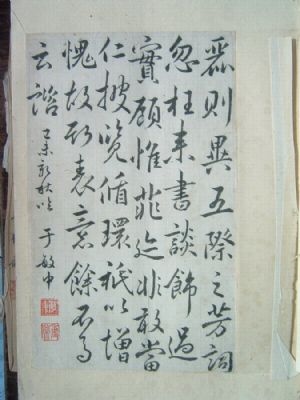 麗則異五際之芳詞
忽枉来書談飾過
實顧惟菲迹非敢當
仁披覽循環祇以增
愧故表意餘不多
云諮 乙未新秋 于敏中